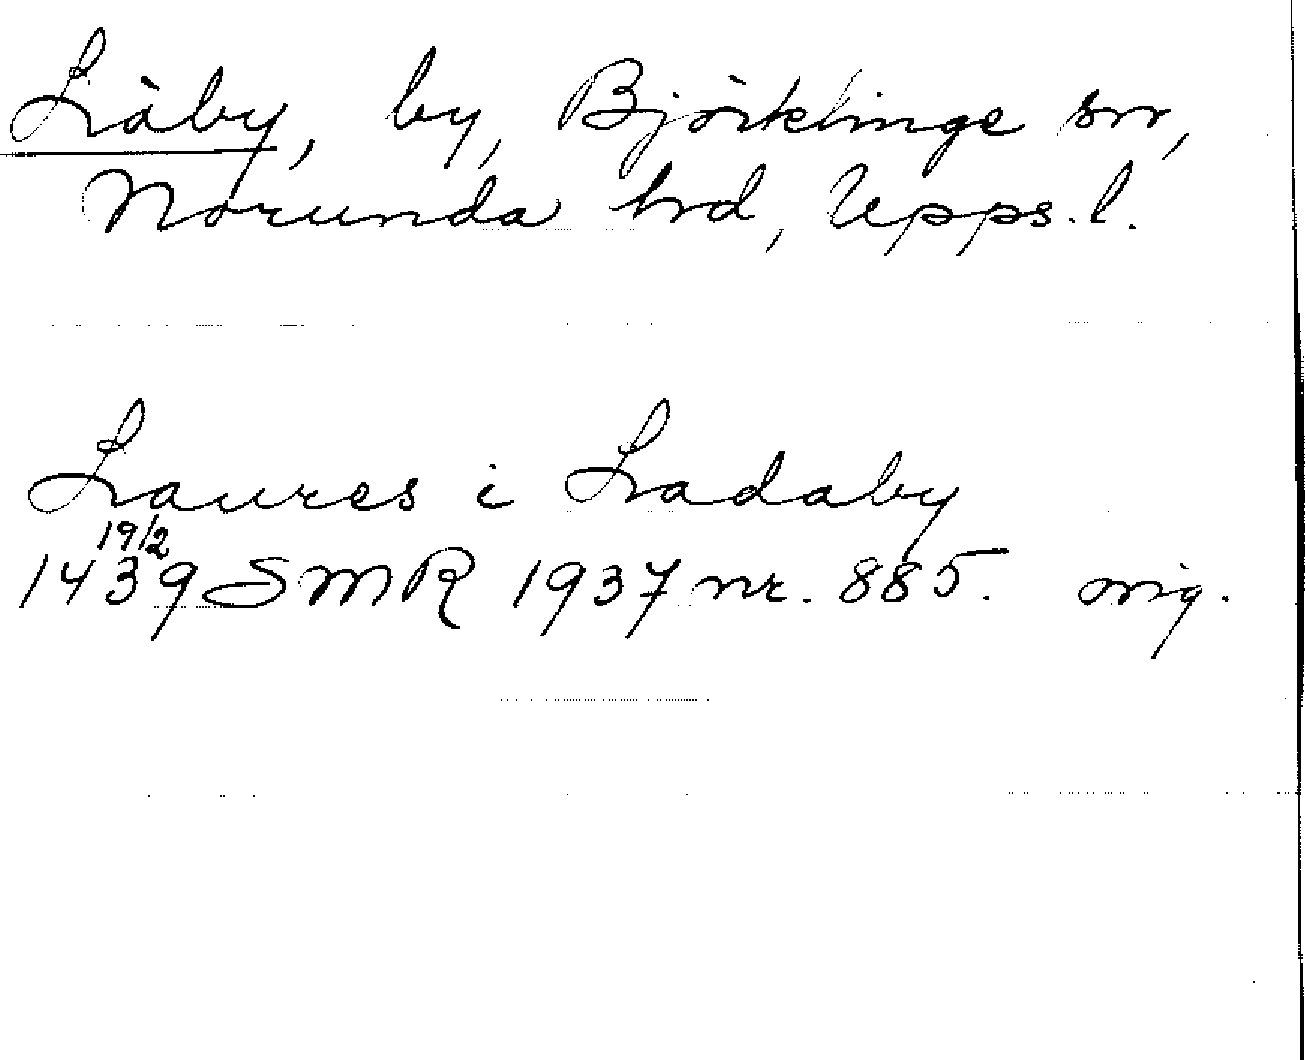 Låby, by, Björklinge sn,
Norunda hrd, Upps. l.
Laures i Ladaby
19/2
1439 SMR 1937 nr. 885. orig.